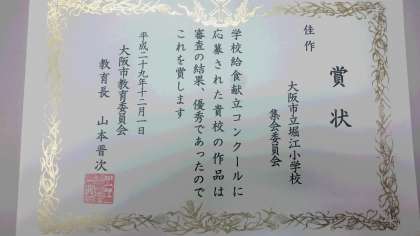 賞状
佳作
大阪市立堀江小学校
集会委員会
学校給食献立コンクールに
応募された貴校の作品は
審査の結果、優秀であったので
これを賞します
平成二十九年十二月一日
大阪市教育委員会
教育長 山本晋次